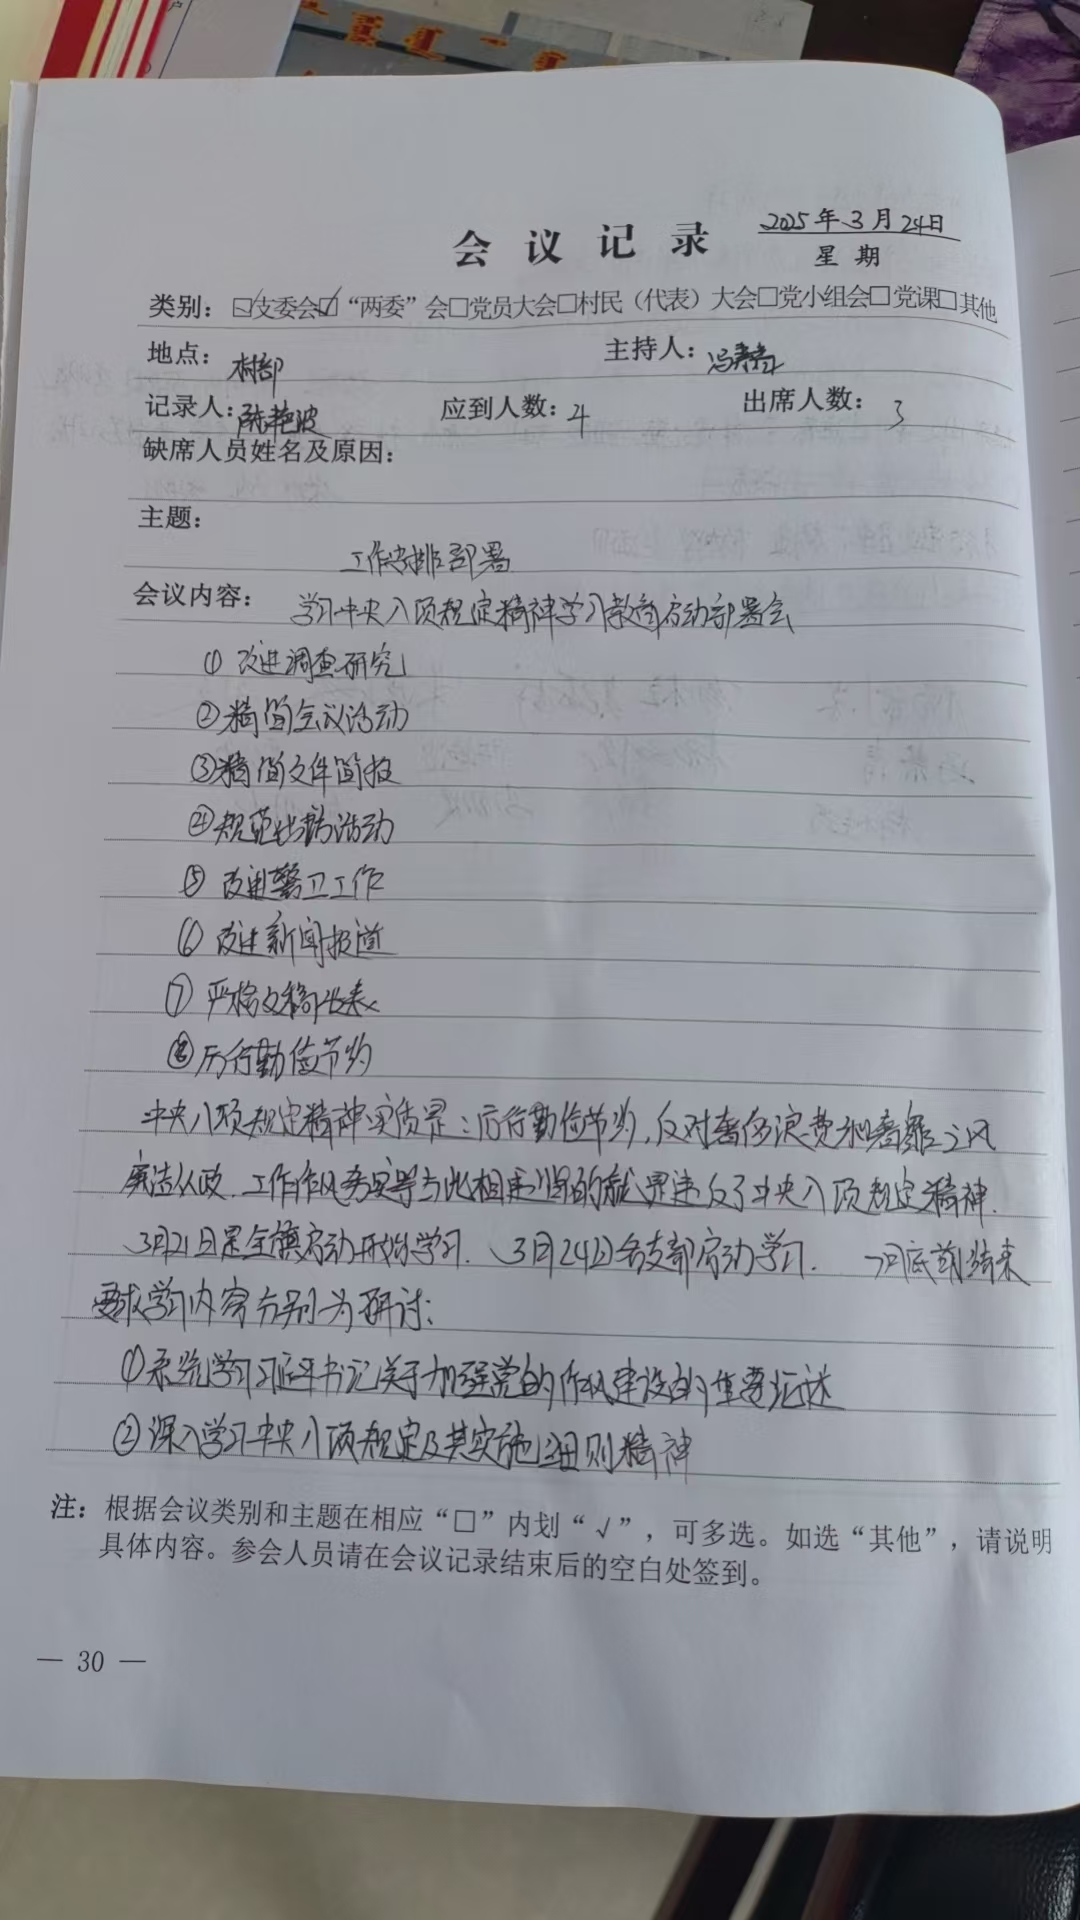 会议记录
2025年3月24日
星期
类别：☑支委会☑“两委”会□党员大会□村民（代表）大会□党小组会□党课□其他
地点：村部 主持人：冯
记录人：陈艳波 应到人数：4 出席人数：3
缺席人员姓名及原因：
主题：
工作安排部署
会议内容：学习中央八项规定精神学习教育启动部署会
①改进调查研究
②精简会议活动
③精简文件简报
④规范出访活动
⑤改进警卫工作
⑥改进新闻报道
⑦严格文稿发表
⑧厉行勤俭节约
中央八项规定精神实质是：厉行勤俭节约，反对奢侈浪费和之风
廉洁从政．工作作风务实等与此相违背的就是违反了中央八项规定精神．
3月21日是全镇启动开始学习．3月24日各支部启动学习．7月底前结束
要求学习内容分别为研讨：
①系统学习习近平书记关于加强党的作风建设的重要论述
②深入学习中央八项规定及其实施细则精神
注：根据会议类别和主题在相应“□”内划“√”，可多选。如选“其他”，请说明
具体内容。参会人员请在会议记录结束后的空白处签到。
— 30 —